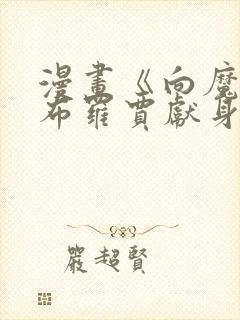 漫畫《向魔
布羅賈獻身
嚴超賢